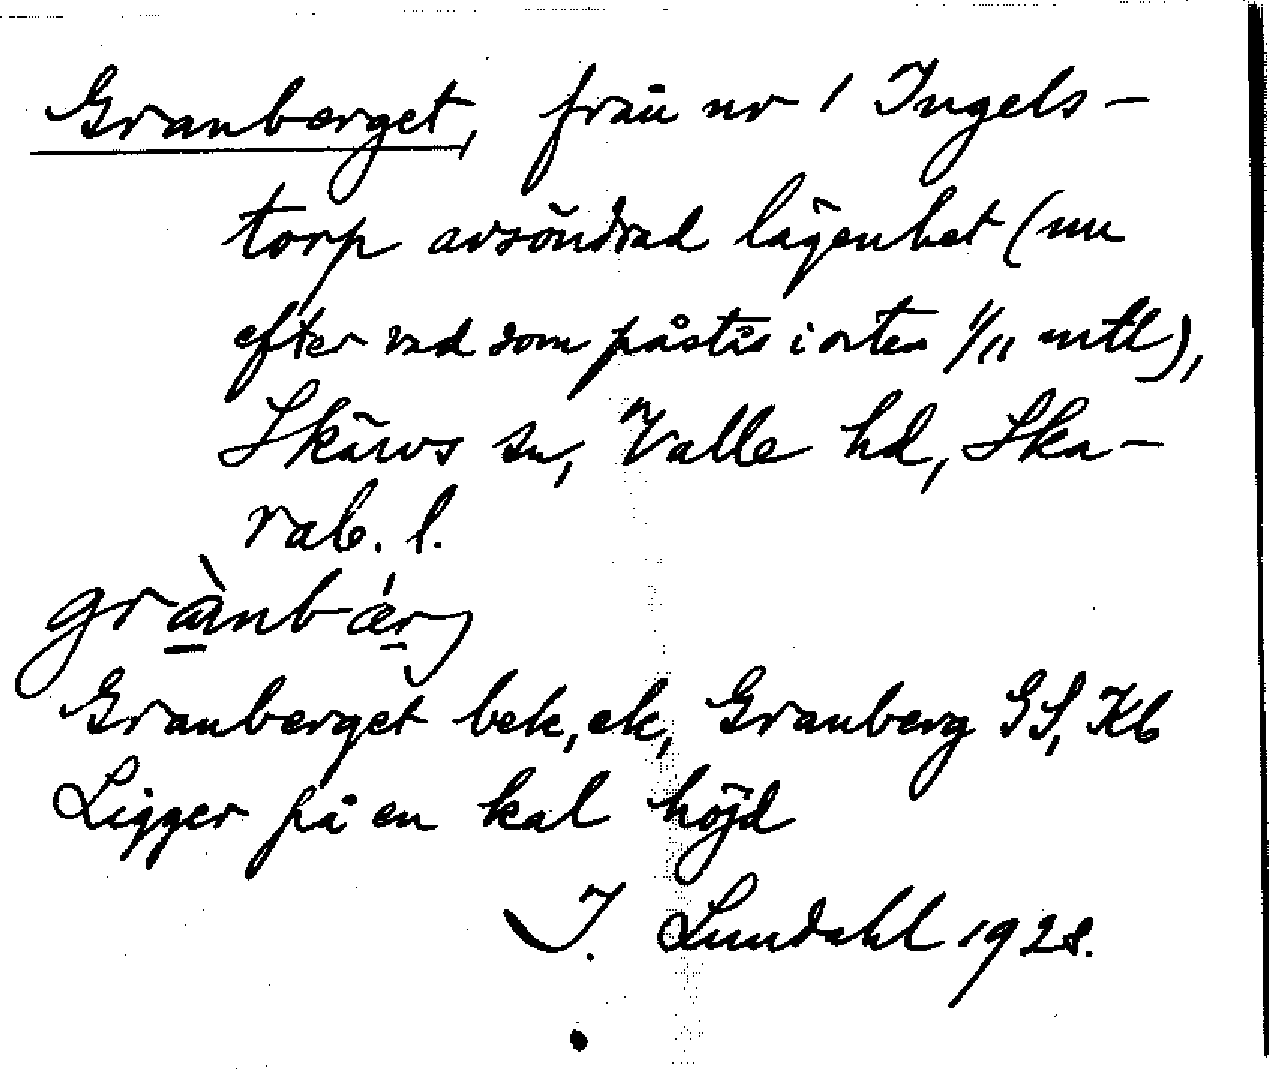 Granberget, från nr 1 Ingels-
torp avsöndrad lägenhet (nu
efter vad som påstås i orten 1/11 mtl),
Skärvs sn, Valle hd, Ska-
rab. l.
grànbǽrj
Granberget bek, ek, Granberg GS, Kb
Ligger på en kal höjd
I. Lundahl 1928.